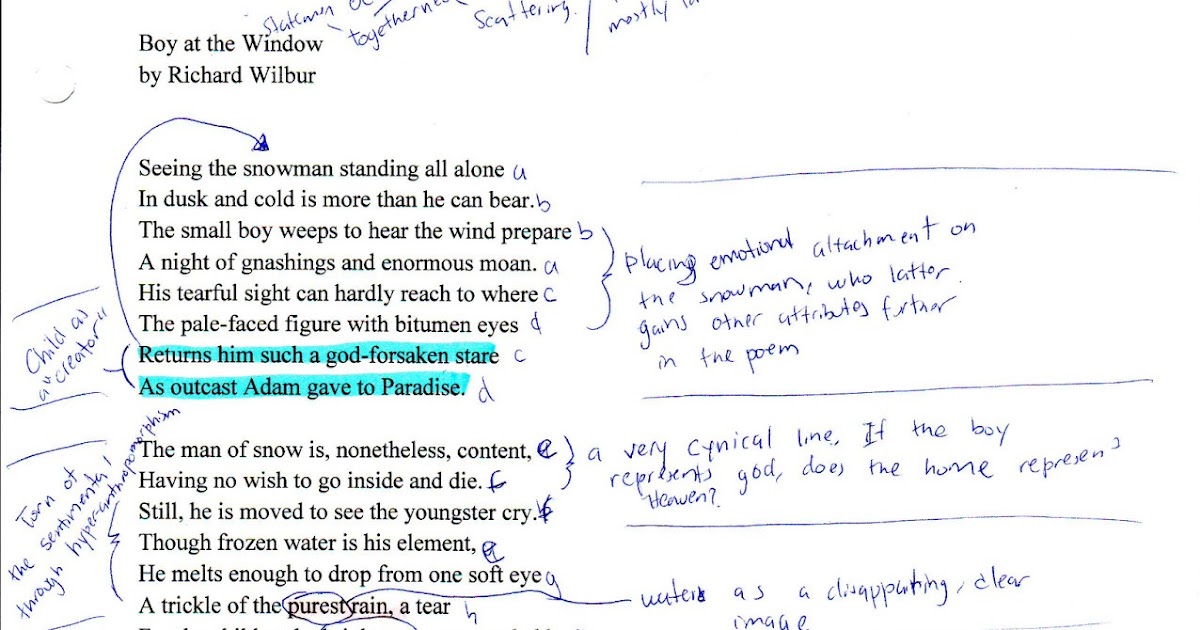 togetherness
scattering.
mostly
Boy at the Window
by Richard Wilbur
Seeing the snowman standing all alone a
In dusk and cold is more than he can bear. b
The small boy weeps to hear the wind prepare b
A night of gnashings and enormous moan. a
His tearful sight can hardly reach to where c
The pale-faced figure with bitumen eyes d
Returns him such a god-forsaken stare c
As outcast Adam gave to Paradise. d
placing emotional attachment on
the snowman, who latter
gains other attributes further
in the poem
Child as
a "creator"
The man of snow is, nonetheless, content, e
Having no wish to go inside and die. f
Still, he is moved to see the youngster cry. f
Though frozen water is his element, e
He melts enough to drop from one soft eye g
A trickle of the purest rain, a tear h
a very cynical line. If the boy
represents god, does the home represent
Heaven?
Torn of
the sentimental,
through hyper-anthropomorphism
water as a disappointing, clear
image